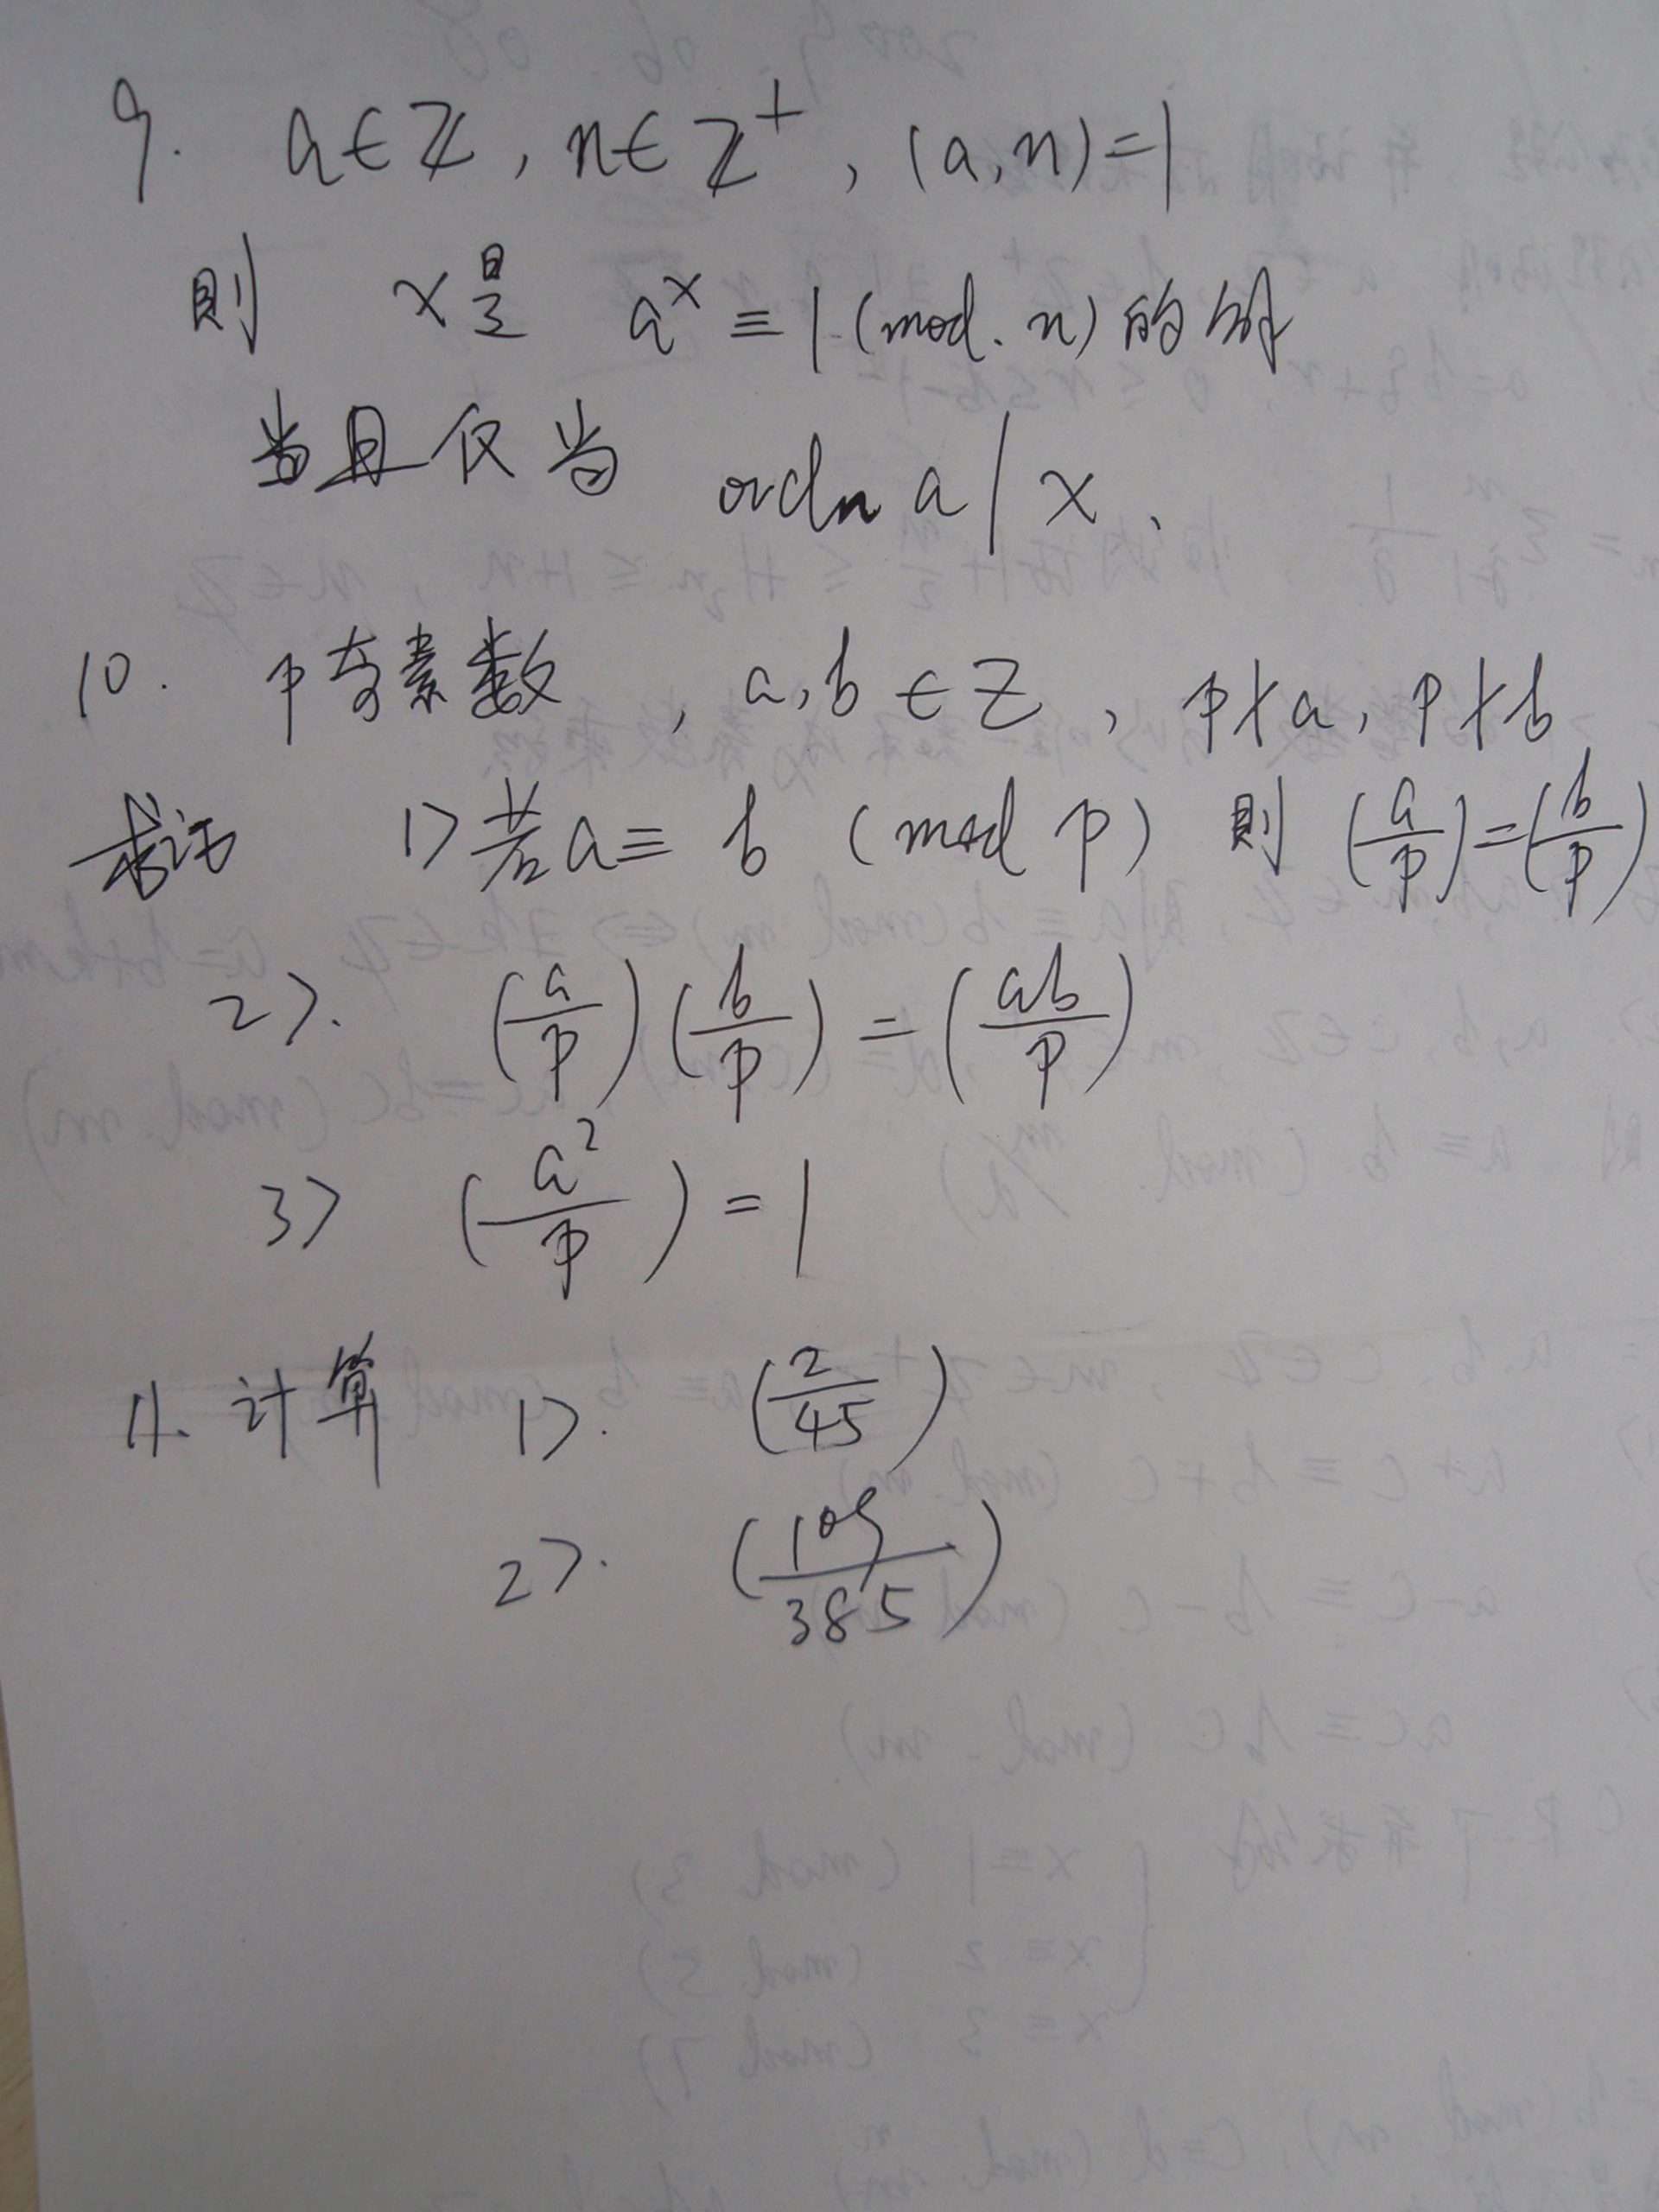 9. a∈Z, n∈Z⁺, (a,n)=1
則 x是 aˣ≡1(mod. n)的解
当且仅当 ordn a | x.
10. p奇素数, a,b∈Z, p∤a, p∤b
求证 1> 若a≡b (mod p) 則 (a/p)=(b/p)
2>. (a/p)(b/p)=(ab/p)
3> (a²/p)=1
11. 计算 1>. (2/45)
2>. (109/385)